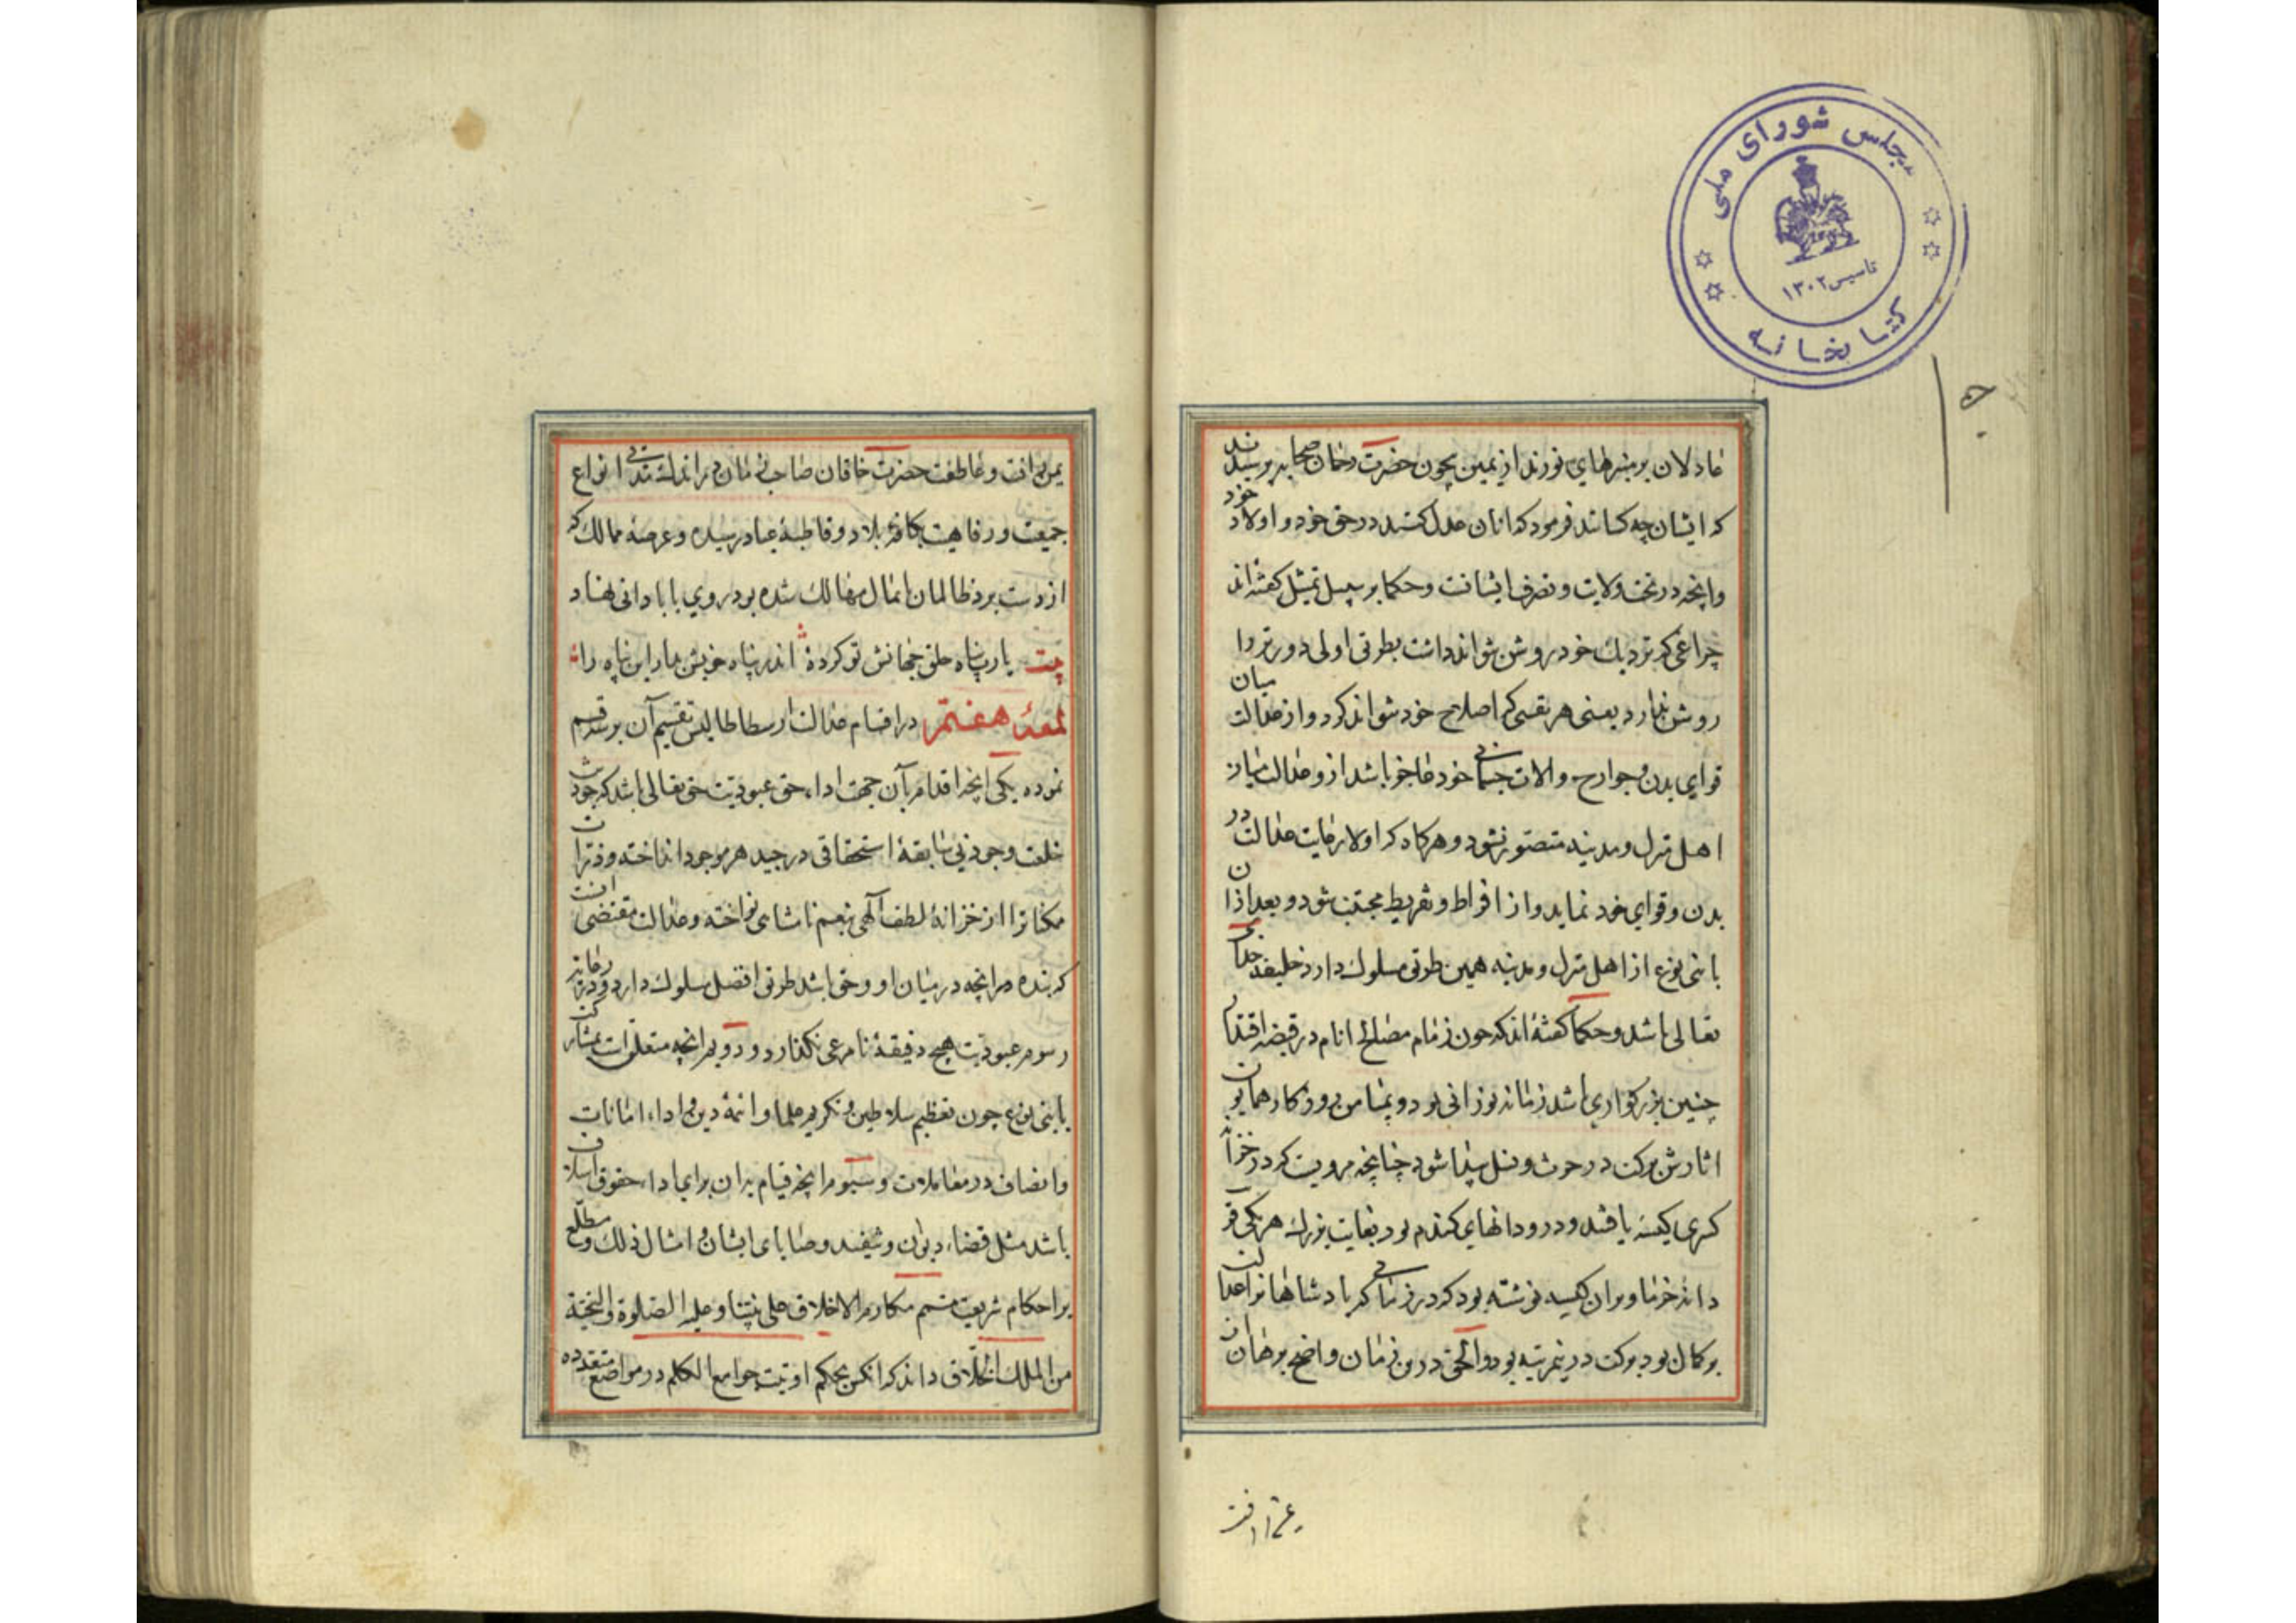 مجلس شورای ملی
تاسیس ۱۳۰۲
کتابخانه
عادلان بر منبرهای نورند از یمین بچون حضرت رحمان صحابه پرسیدند
که ایشان چه کسانند فرمود که آنان عدل کنند در حق خود و اولاد خود
وانچه در تحت ولایت و تصرف ایشانت وحکما بر سبیل تمثیل گفته‌اند
چراغی که نزدیك خود روشن نتواند داشت بطریق اولی دورتر را
روشن ندارد یعنی هر نفسی که اصلاح خود نتواند کرد و از عدالت میان
قوای بدن و جوارح والات جسمانی خود عاجز باشد ازو عدالت میان
اهل منزل و مدینه متصور نشود و هرکاه که اولا رعایت عدالت در
بدن و قوای خود نماید و از افراط و تفریط مجتنب شود و بعد ازان
با بنی نوع از اهل منزل و مدینه همین طریق مسلوك دارد خلیفه خدای
تعالی باشد و حکما گفته‌اند که چون زمام مصالح انام در قبضه اقتدار
چنین بزرگواری باشد زمانه نورانی بود و بیمامن روزکار همایون
اثارش برکت در حرث و نسل پیدا شود چنانچه مرویست که در خزانه
کسری کیسه یافتند و درو دانهای کندم بود بغایت بزرك هر یکی قدر
دانه خرما و بران کیسه نوشته بود که در زمانی که پادشاهانرا عدالت
بر کمال بود برکت درین مرتبه بود والحق درین زمان واضح برهان
یمن رافت
یمن رافت و عاطفت حضرت خاقان صاحب زمان در اندك مدتی انواع
جمعیت و رفاهیت بکافه بلاد و قاطبۀ عباد رسیده و عرصه ممالك که
از دست برد ظالمان پامال مهالك شده بود روی بابادانی نهاد
بیت یارب پناه خلق جهانش تو کردۀ اندر پناه خویش بدار این پناه را
لمعۀ هفتم در اقسام عدالت ارسطاطالیس تقسیم آن بر سه قسم
نموده یکی انچه اقدام بآن جهت اداء حق عبودیت حق تعالی باشد که جود
خلعت وجود بی سابقۀ استحقاقی در جید هر موجود انداخته و ذرات
مکنا ترا از خزانۀ لطف آلهی بنعم نامتناهی نواخته و عدالت مقتضی انست
که بنده در انچه در میان او و حق باشد طریق افضل مسلوك دارد و در رعایت
رسوم عبودیت هیچ دقیقۀ نامرعی نکذارد و دویم انچه متعلق است بمشارکت
با بنی نوع چون تعظیم سلاطین و تکریم علما و ائمۀ دین و اداء امانات
وانصاف در معاملات و سیوم انچه قیام بدان برای اداء حقوق اسلاف
باشد مثل قضاء دیون و تنفیذ وصایای ایشان و امثال ذلك و مطلع
بر احکام شریعت متمم مکارم الاخلاق علی نبینا و علیه الصلوة والتحیة
من الملك الخلاق داند که انکس بحکم اوتیت جوامع الکلم در مواضع متعدده